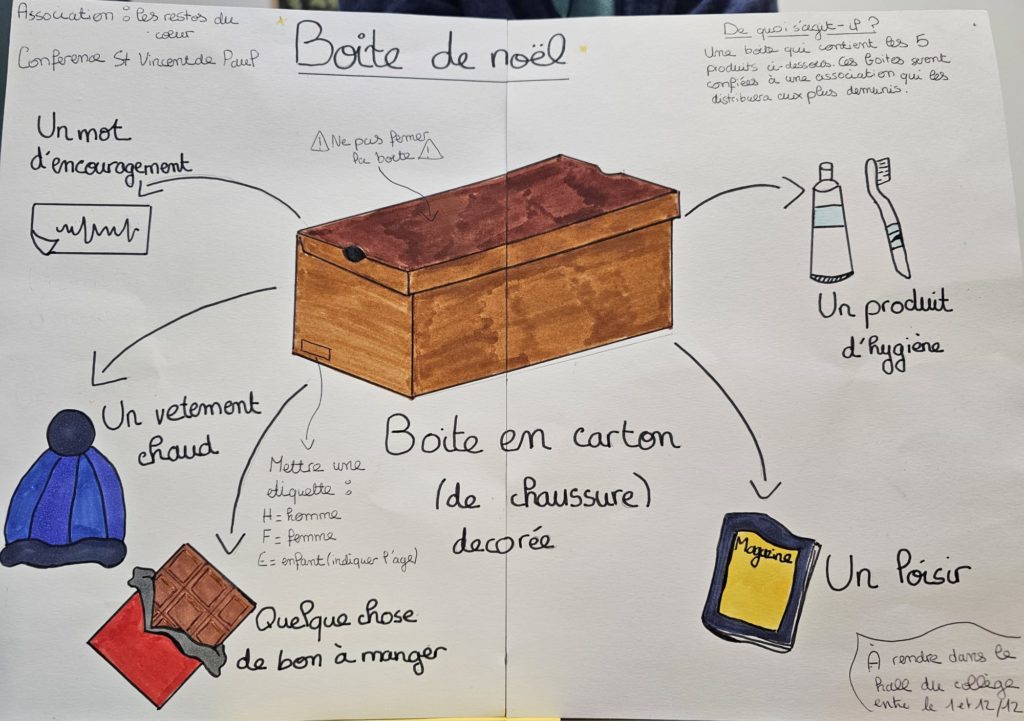 Association : les restos du
cœur
Conférence St Vincent de Paul
Boite de noël
De quoi s'agit-il ?
Une boite qui contient les 5
produits ci-dessous. Ces boites seront
confiées à une association qui les
distribuera aux plus demunis.
Un mot
d'encouragement
Ne pas fermer
la boite
Un produit
d'hygiène
Un vetement
chaud
Mettre une
etiquette :
H = homme
F = femme
E = enfant (indiquer l'age)
Boite en carton
(de chaussure)
decorée
Quelque chose
de bon à manger
Magazine
Un loisir
À rendre dans le
hall du collège
entre le 1 et 12/12